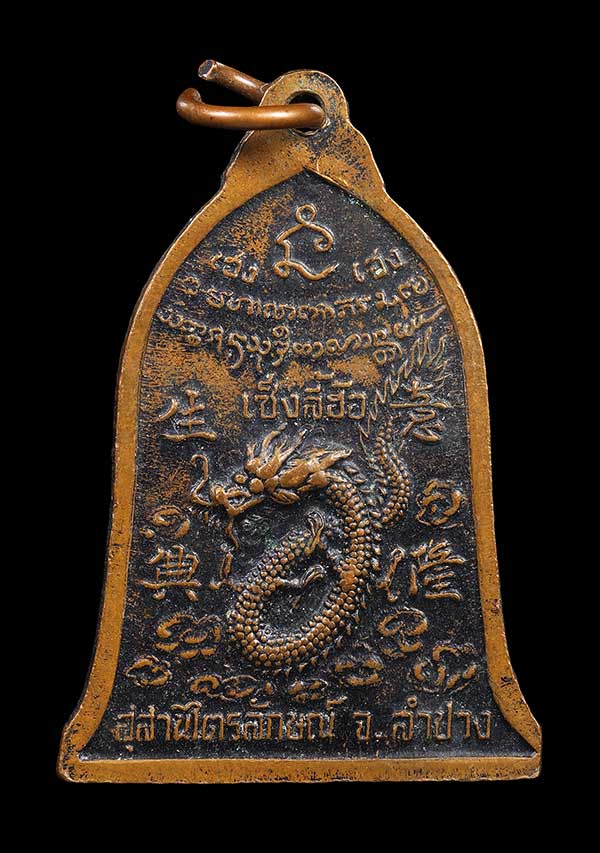 เฮง เฮง
เซ็งลี้ฮ้อ
生 意
興 隆
สุสานไตรลักษณ์ จ.ลำปาง